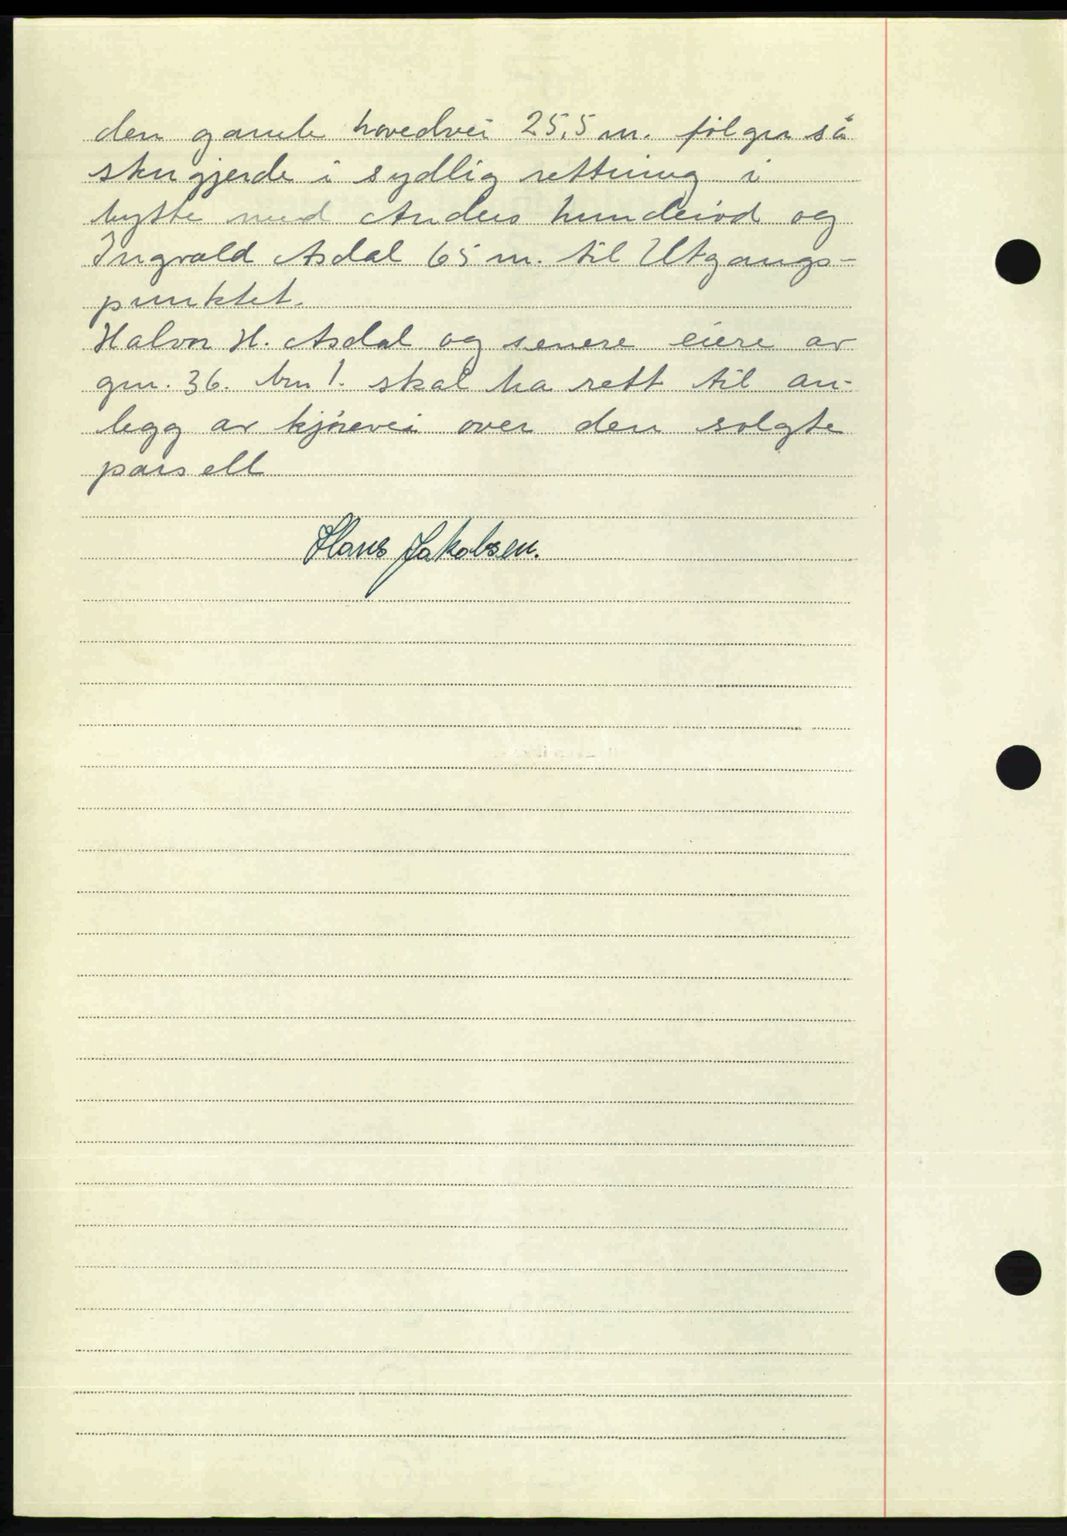 den gamle hovedvei 25,5 m. følger så
stengjerde i sydlig rettning i
bytte med Anders Lunderød og
Ingvald Asdal 65 m. til Utgangs-
punktet.
Halvor H. Asdal og senere eiere av
gnr. 36. bnr 1. skal ha rett til an-
legg av kjørevei over den solgte
parsell
Hans Jakobsen.